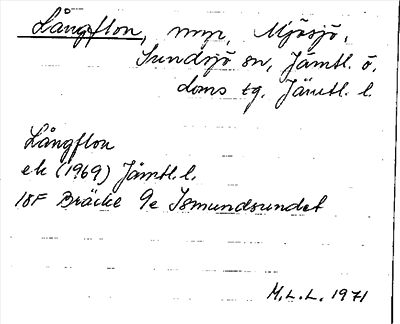 Långflon, myr, Mjösjö,
Sundsjö sn, Jämtl. ö.
doms tg. Jämtl. l.
Långflon
ek (1969) Jämtl. l.
18F Bräcke 9e Ismundsundet
M.L.L. 1971